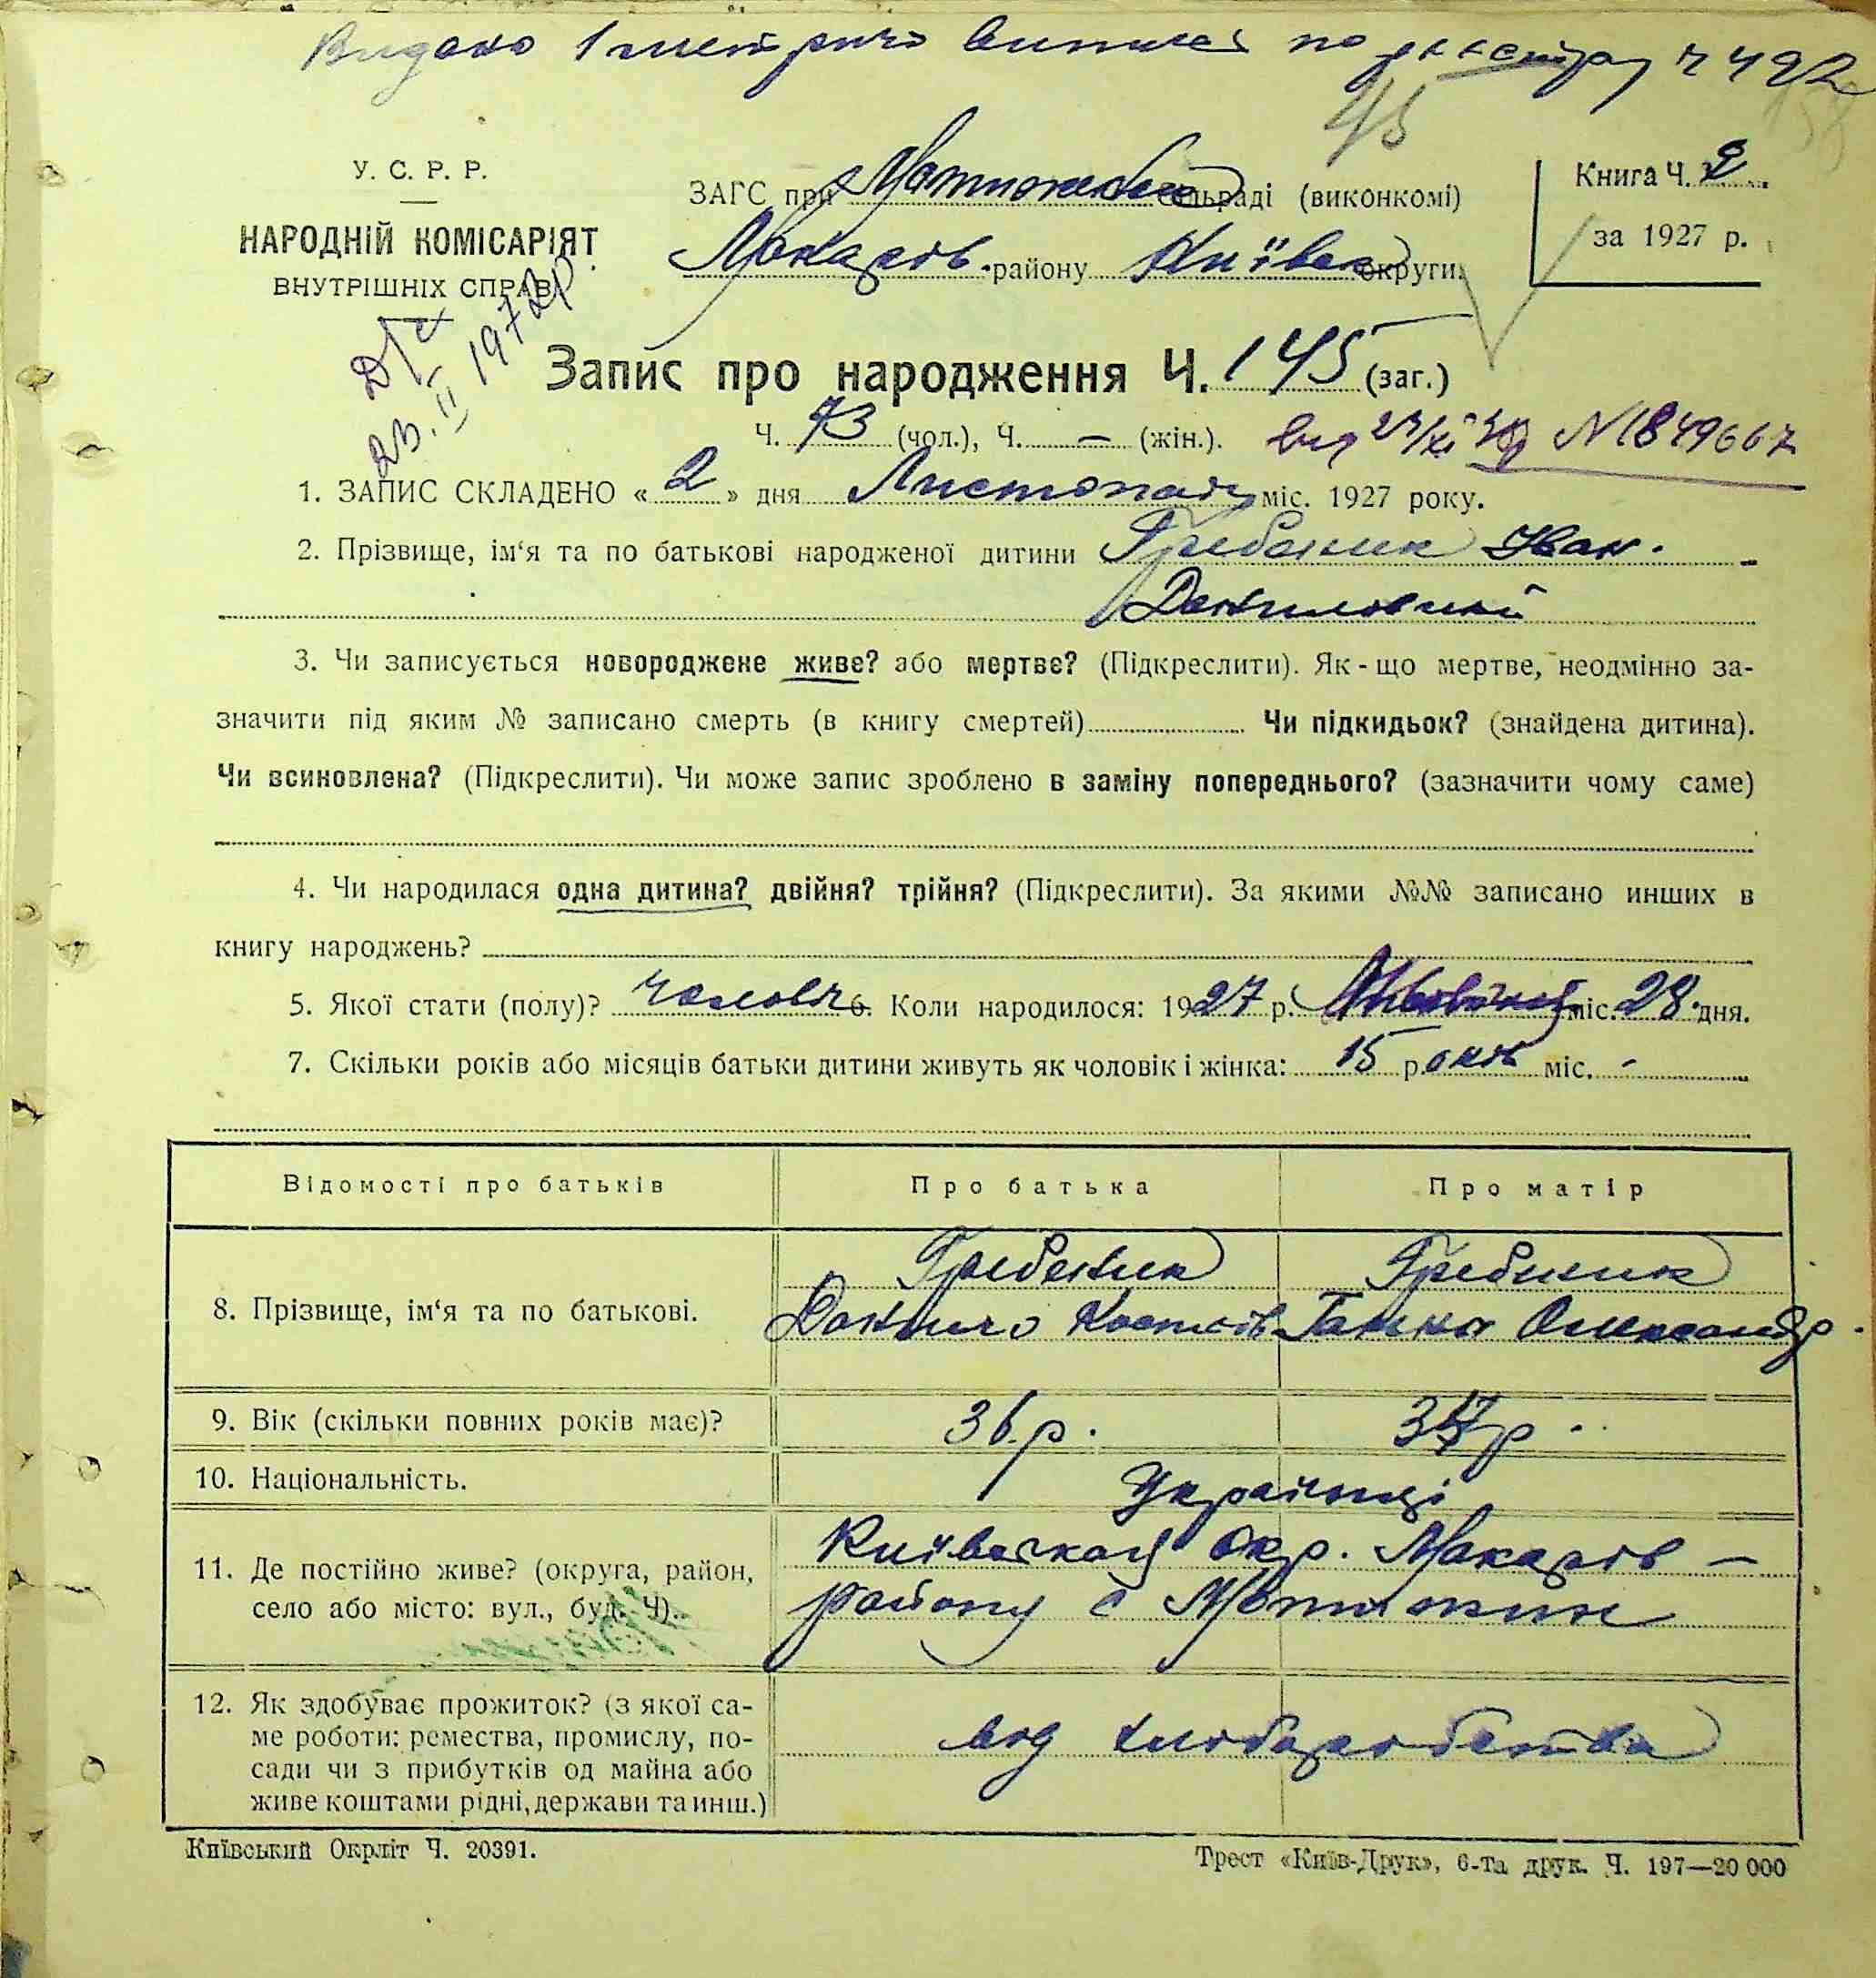 Видано 1 метричн виписка по реєстру ч 492
45
У. С. Р. Р.
НАРОДНІЙ КОМІСАРІЯТ
ВНУТРІШНІХ СПРАВ
23. II 1972р.
ЗАГС при Мотижинські сільраді (виконкомі)
Макарів. району Київськ округи.
Книга Ч. 2
за 1927 р.
Запис про народження Ч. 145 (заг.)
Ч. 73 (чол.), Ч. — (жін.).
N 1849667
1. ЗАПИС СКЛАДЕНО « 2 » дня Листопаду міс. 1927 року.
2. Прізвище, ім‘я та по батькові народженої дитини Гребеник Іван.
Данилович
3. Чи записується новороджене живе? або мертве? (Підкреслити). Як-що мертве, неодмінно за-
значити під яким № записано смерть (в книгу смертей) Чи підкидьок? (знайдена дитина).
Чи всиновлена? (Підкреслити). Чи може запис зроблено в заміну попереднього? (зазначити чому саме)
4. Чи народилася одна дитина? двійня? трійня? (Підкреслити). За якими №№ записано инших в
книгу народжень?
5. Якої стати (полу)? чоловіч 6. Коли народилося: 1927 р. міс. 28 дня.
7. Скільки років або місяців батьки дитини живуть як чоловік і жінка: 15 років міс. -
Відомості про батьків Про батька Про матір
8. Прізвище, ім‘я та по батькові. Гребеник Гребеник
Данило Костів Ганна Олександр.
9. Вік (скільки повних років має)? 36 р. р.
10. Національність. Українці
11. Де постійно живе? (округа, район,
село або місто: вул., буд. Ч).
Київської Окр. Макарів —
району с Мотижин
12. Як здобуває прожиток? (з якої са-
ме роботи: ремества, промислу, по-
сади чи з прибутків од майна або
живе коштами рідні, держави та инш.)
від хліборобства
Київський Окрліт Ч. 20391.
Трест «Київ-Друк», 6-та друк. Ч. 197—20 000